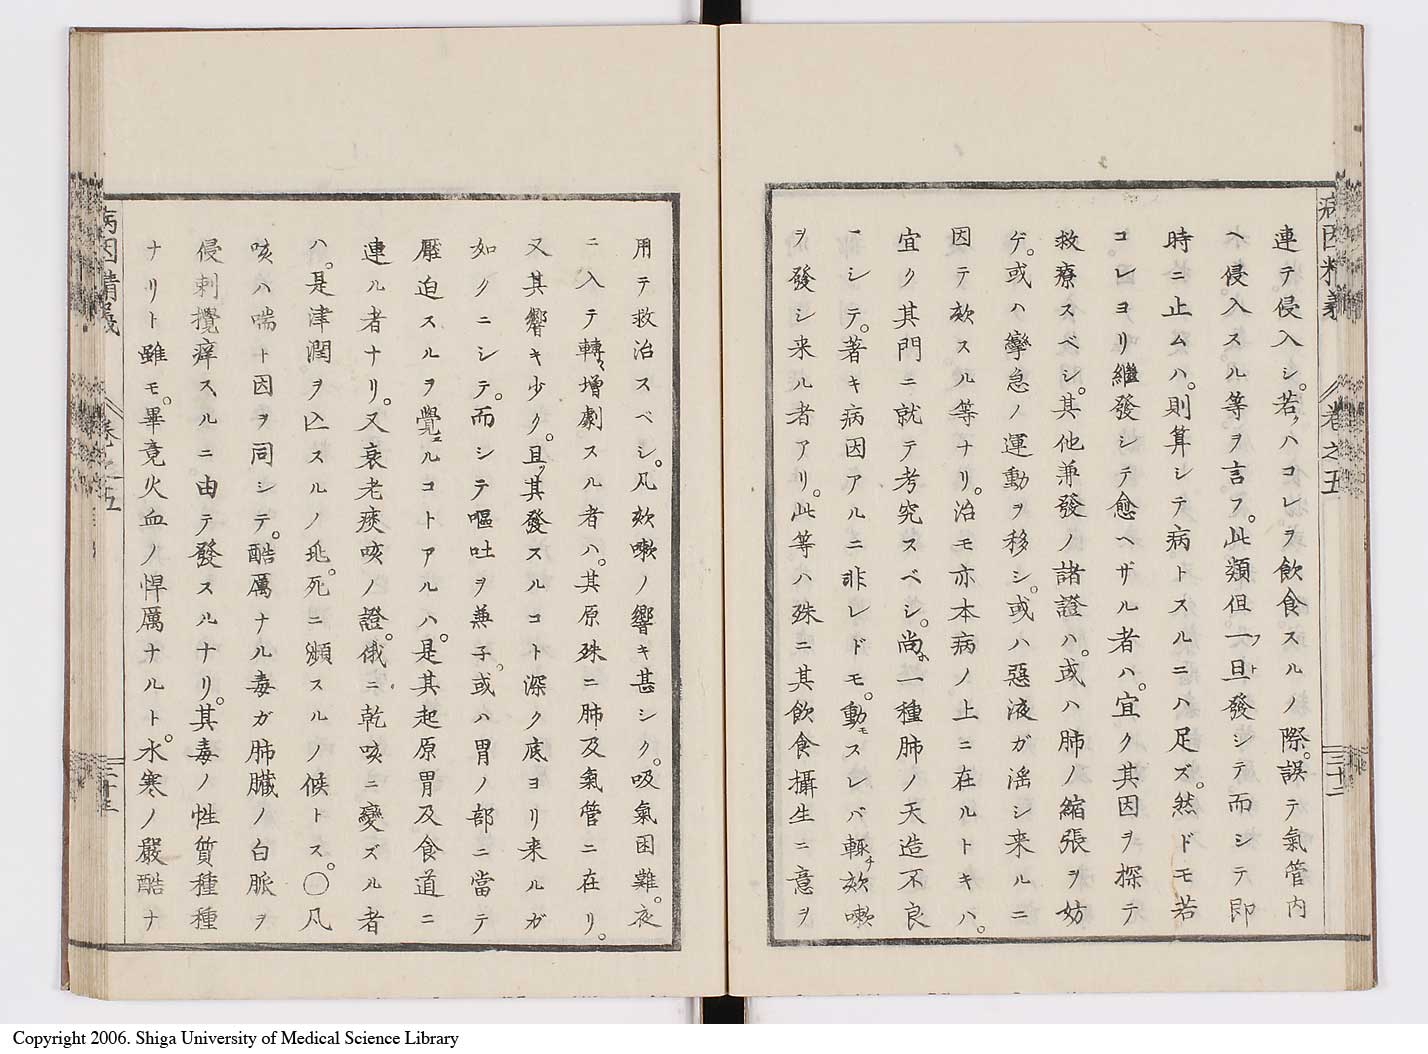 病因精義 巻之五 三十二
連テ侵入シ。若ハコレヲ飲食スルノ際。誤テ氣管内
ヘ侵入スル等ヲ言フ。此類但一旦發シテ而シテ即
時ニ止ムハ。則算シテ病トスルニハ足ズ。然ドモ若
コレヨリ繼發シテ愈ヘザル者ハ。宜ク其因ヲ探テ
救療スベシ。其他兼發ノ諸證ハ。或ハ肺ノ縮張ヲ妨
ゲ。或ハ攣急ノ運動ヲ移シ。或ハ惡液ガ滛シ来ルニ
因テ欬スル等ナリ。治モ亦本病ノ上ニ在ルトキハ。
宜ク其門ニ就テ考究スベシ。尚一種肺ノ天造不良
ニシテ。著キ病因アルニ非レドモ。動スレバ輙欬嗽
ヲ發シ来ル者アリ。此等ハ殊ニ其飲食攝生ニ意ヲ
用テ救治スベシ。凡欬嗽ノ響キ甚シク。吸氣困難。夜
ニ入テ轉增劇スル者ハ。其原殊ニ肺及氣管ニ在リ。
又其響キ少ク。且其發スルコト深ク底ヨリ来ルガ
如クニシテ。而シテ嘔吐ヲ兼子。或ハ胃ノ部ニ當テ
壓迫スルヲ覺ルコトアルハ。是其起原胃及食道ニ
連ル者ナリ。又衰老痰咳ノ證。俄ニ乾咳ニ變ズル者
ハ。是津潤ヲ亾スルノ兆。死ニ瀕スルノ候トス。〇凡
咳ハ喘ト因ヲ同シテ。酷厲ナル毒ガ肺臓ノ白脈ヲ
侵刺攪痒スルニ由テ發スルナリ。其毒ノ性質種種
ナリト雖モ。畢竟火血ノ悍厲ナルト。水寒ノ嚴酷ナ
病因精義 巻之五 三十三
Copyright 2006. Shiga University of Medical Science Library